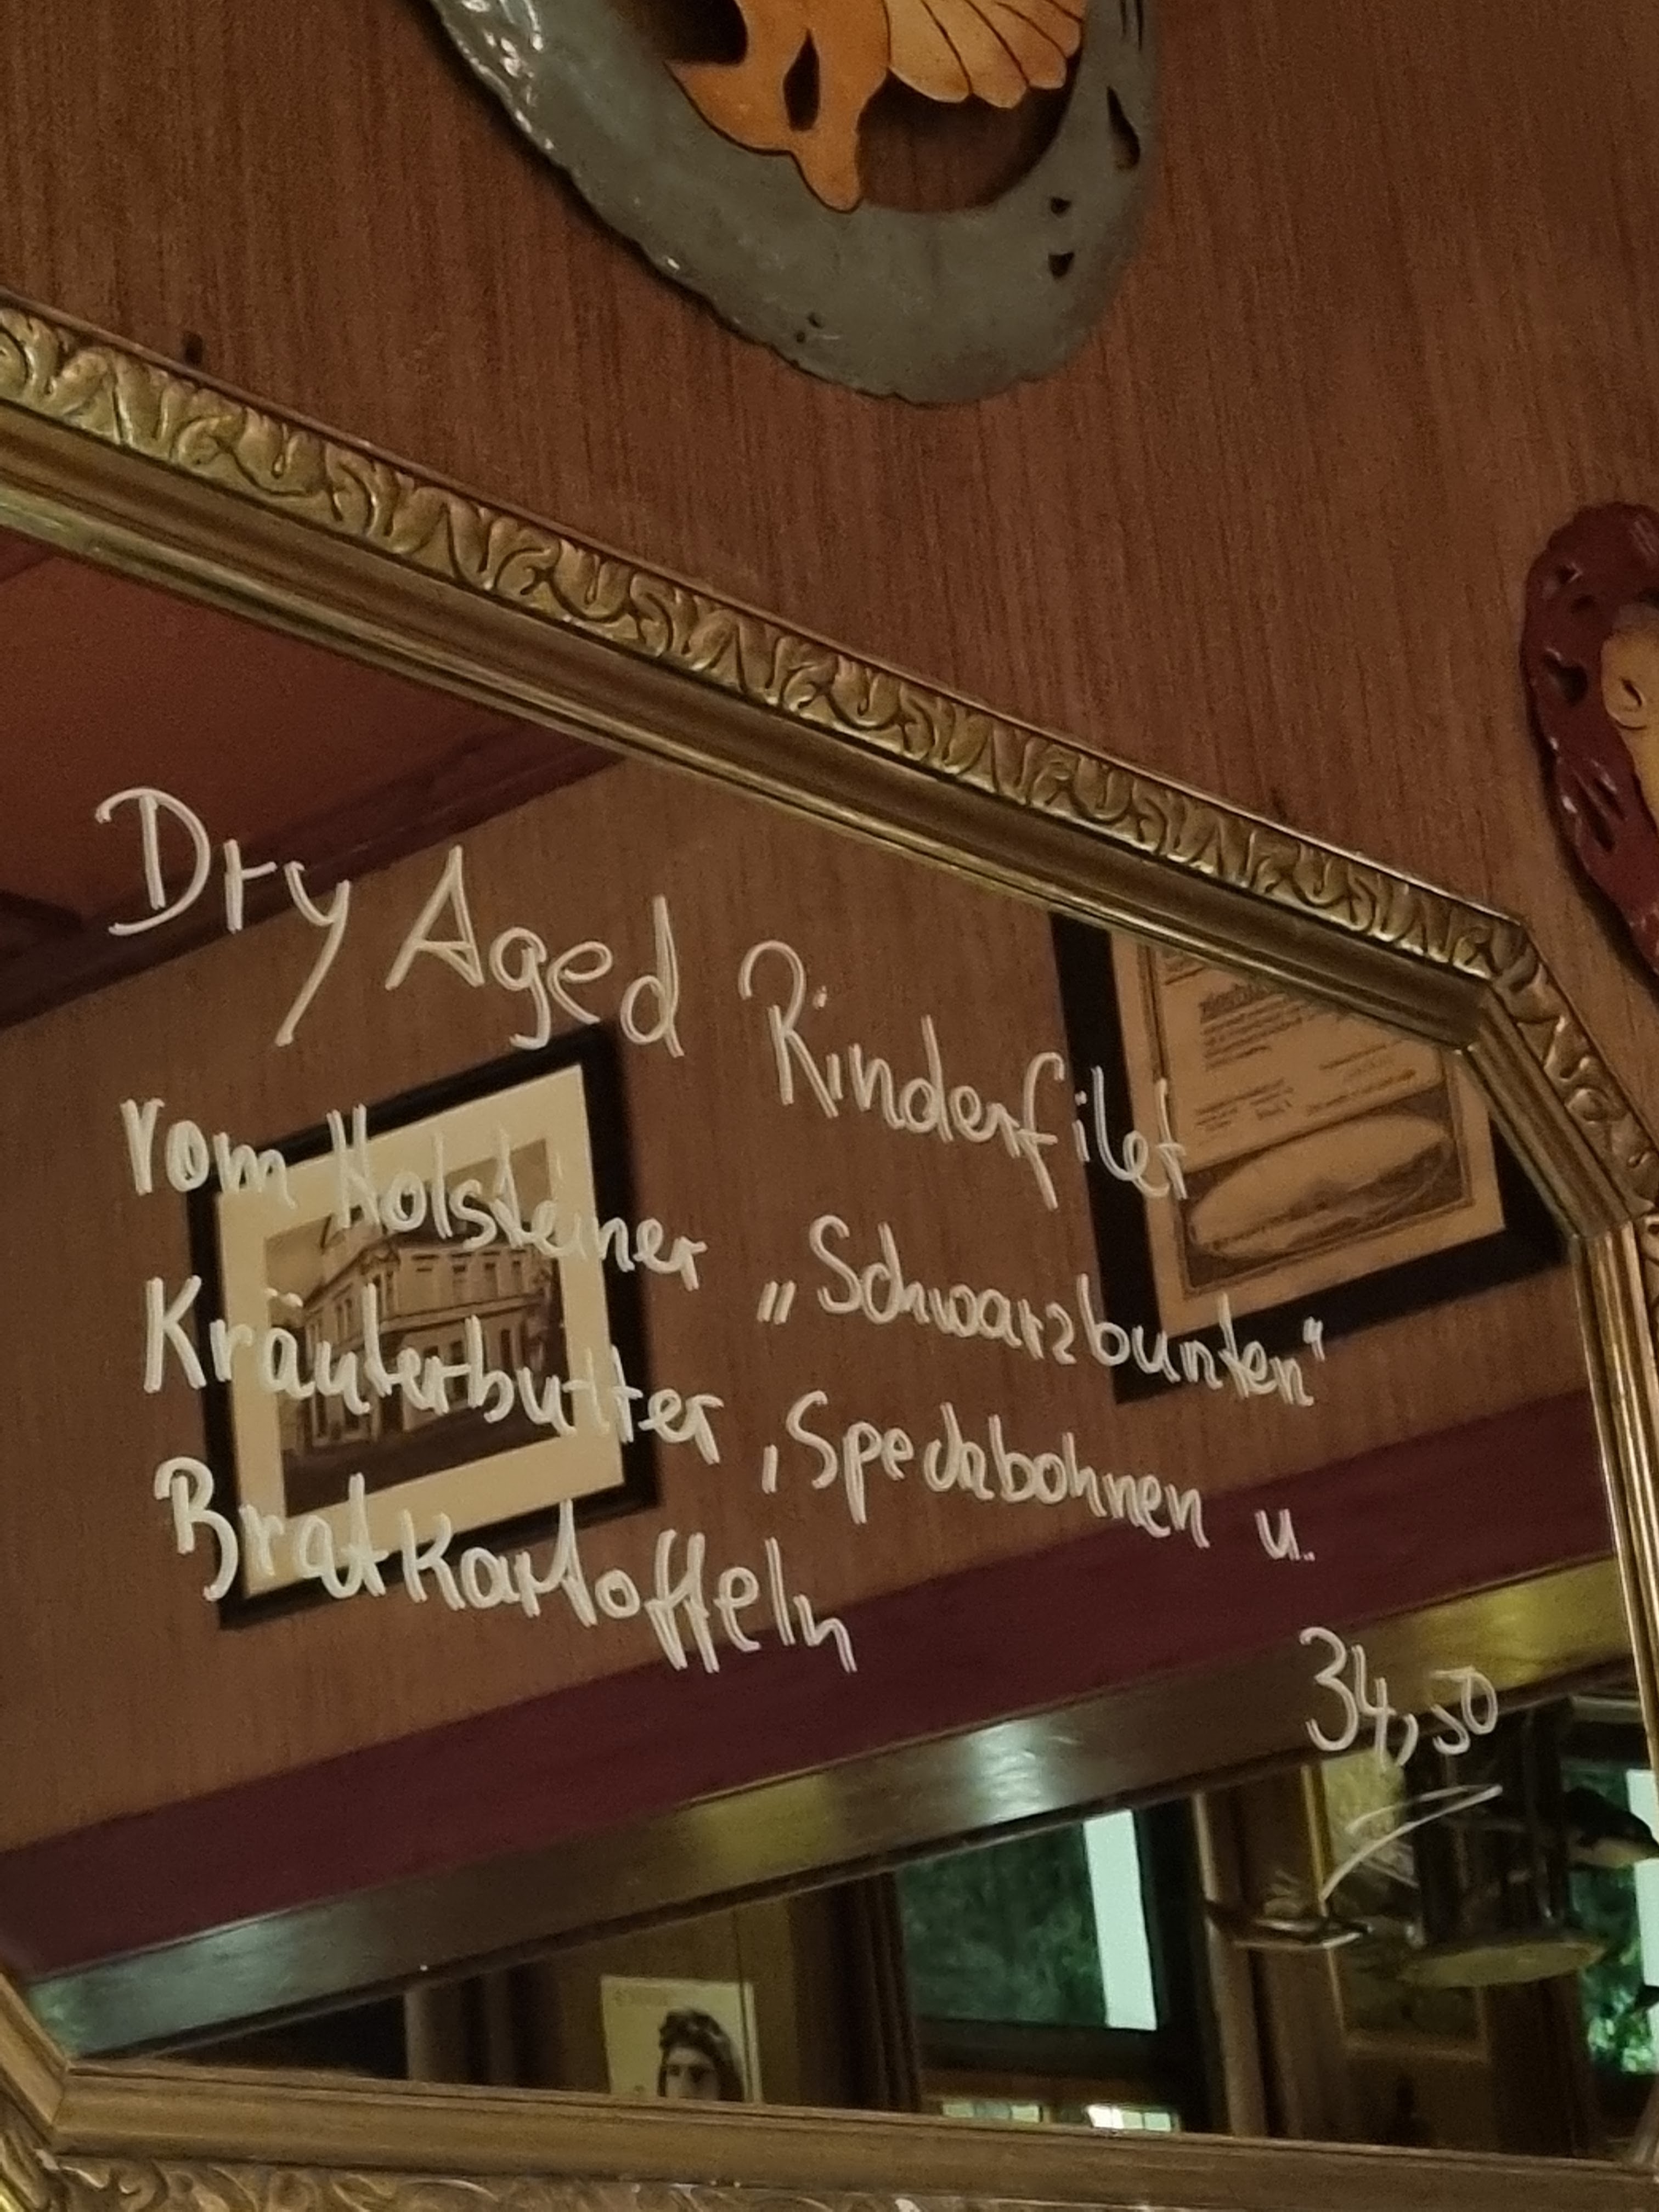 Dry Aged Rinderfilet
vom Holsteiner „Schwarzbunten"
Kräuterbutter, Speckbohnen u.
Bratkartoffeln
34,50